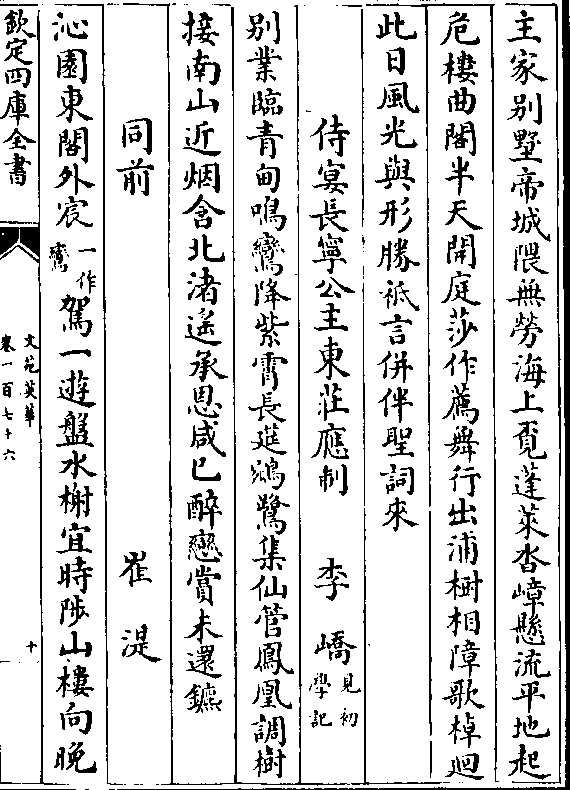 主家别墅帝城隈無勞海上覔蓬萊沓嶂懸流平地起
危樓曲閣半天開庭莎作薦舞行出浦樹相障歌棹廻
此日風光與形勝祇言併伴聖詞來
侍宴長寧公主東莊應制 李嶠見初學記
别業臨青甸鳴鸞降紫霄長莚鵷鷺集仙管鳳凰調樹
接南山近烟含北渚遙承恩咸已醉戀賞未還鑣
同前 崔湜
沁園東閣外宸一作鸞駕一遊盤水榭宜時陟山樓向晚
欽定四庫全書
文苑英華
卷一百七十六
十